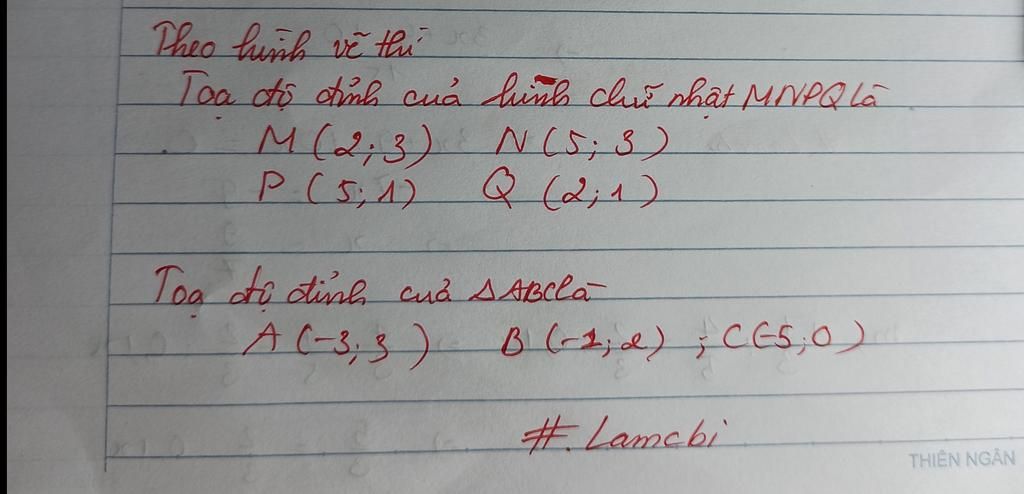 Theo hình vẽ thì
Toạ độ đỉnh của hình chữ nhật MNPQ là
M (2; 3) N (5; 3)
P (5; 1) Q (2; 1)
Toạ độ đỉnh của ΔABC là
A (-3; 3) B (-1; 2) ; C (-5; 0)
#. Lamchi
THIÊN NGÂN